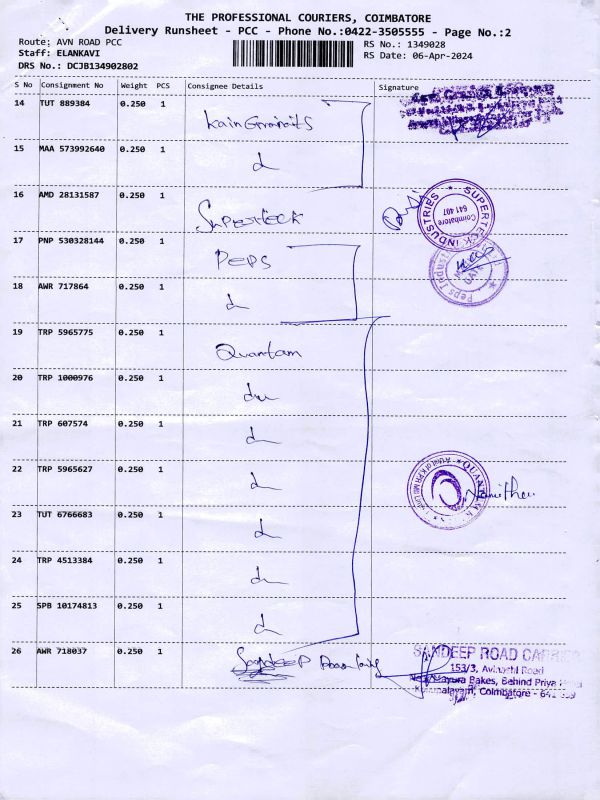 THE PROFESSIONAL COURIERS, COIMBATORE
Delivery Runsheet - PCC - Phone No.:0422-3505555 - Page No.:2
Route: AVN ROAD PCC
Staff: ELANKAVI
DRS No.: DCJB134902802
RS No.: 1349028
RS Date: 06-Apr-2024
S No Consignment No Weight PCS Consignee Details Signature
14 TUT 889384 0.250 1
15 MAA 573992640 0.250 1
16 AMD 28131587 0.250 1 Superteck
SUPERTECK INDUSTRIES
Coimbatore
641 407
17 PNP 530328144 0.250 1 PEPS
Peps
18 AWR 717864 0.250 1
19 TRP 5965775 0.250 1 Quantam
20 TRP 1000976 0.250 1
21 TRP 607574 0.250 1
22 TRP 5965627 0.250 1
23 TUT 6766683 0.250 1
24 TRP 4513384 0.250 1
25 SPB 10174813 0.250 1
26 AWR 718037 0.250 1 Sandeep
SANDEEP ROAD CARRIER
153/3, Avinashi Road
Bakes, Behind Priya
Coimbatore - 641